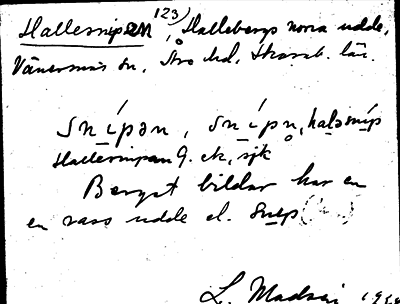 Hallesnipen 123), Hallebergs norra udde,
Vänersnäs sn, Åse hd, Skarab. län.
snípən, snípn̥, haləsníp
Hallesnipan G. ek, sjk
Berget bildar här en
en vass udde el. snep
L. Madsén